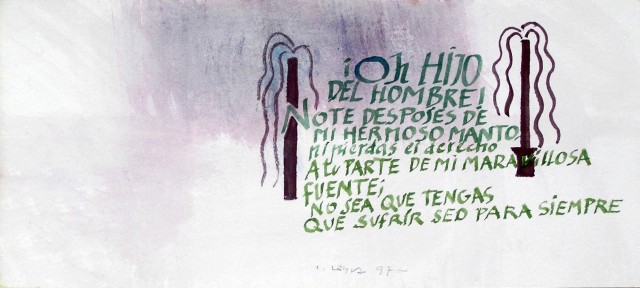 ¡Oh HIJO
DEL HOMBRE!
NO TE DESPOSÉS DE
MI HERMOSO MANTO,
ni pierdas el derecho
A tu PARTE DE MI MARAVILLOSA
FUENTE;
NO SEA QUE TENGAS
QUE SUFRIR SED PARA SIEMPRE
97